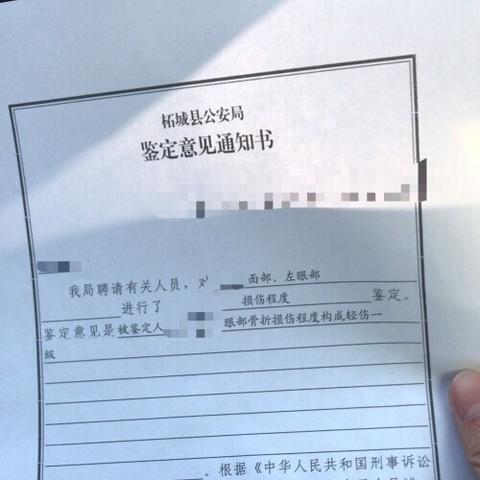 柘城县公安局
鉴定意见通知书
我局聘请有关人员，对 面部、左眼部
进行了 损伤程度 鉴定。
鉴定意见是被鉴定人 眼部骨折损伤程度构成轻伤一
级
。根据《中华人民共和国刑事诉讼